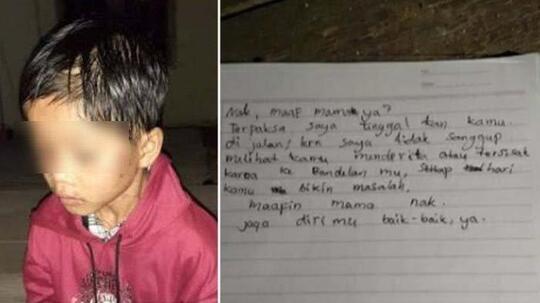 Nak, maaf mama ya?
Terpaksa saya tinggal kan kamu
di jalan, krn saya tidak sanggup
melihat kamu menderita atau tersisat
karea ke Bandelan mu, setiap hari
kamu bikin masalah.
maapin mama nak.
jaga diri mu baik-baik, ya.